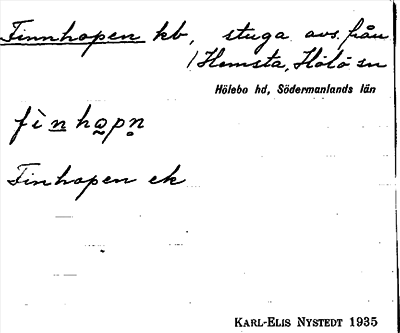 Finnhopen kb, stuga avs. från
1 Hemsta, Hölö sn
Hölebo hd, Södermanlands län
fìn hǫpn̥
Finhopen ek
KARL-ELIS NYSTEDT 1935